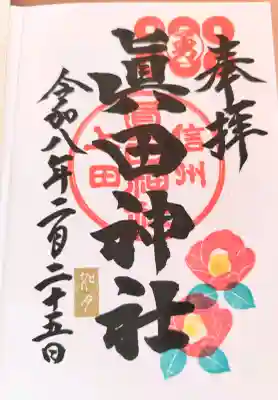 奉拝
眞田神社
信州
上田
眞田神社
令和八年二月二十五日
如月